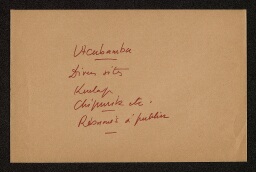 Utcubamba
Divers sites
Kuelap
Chipuric etc.
Résumé à publier